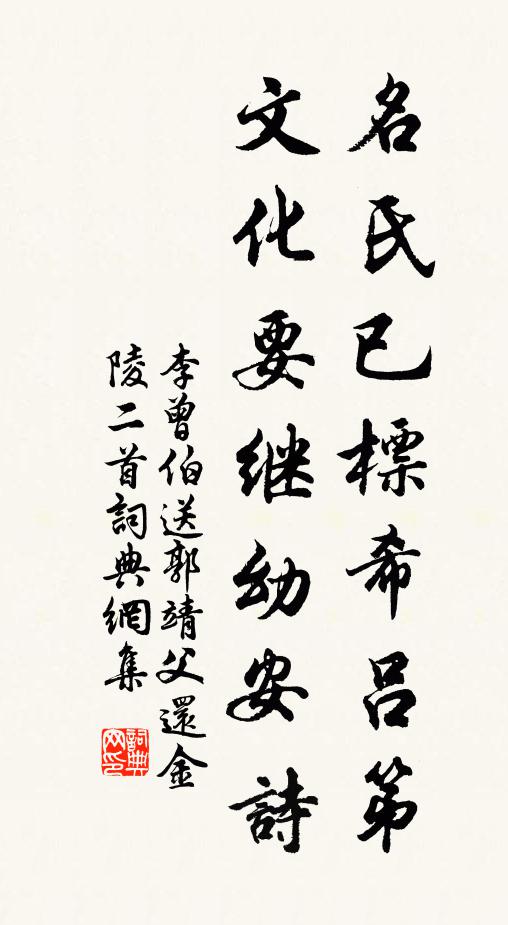 名氏已標希呂第
文化要继幼安詩
李曾伯送郭靖父還金
陵二首詞典網集
詞典网印